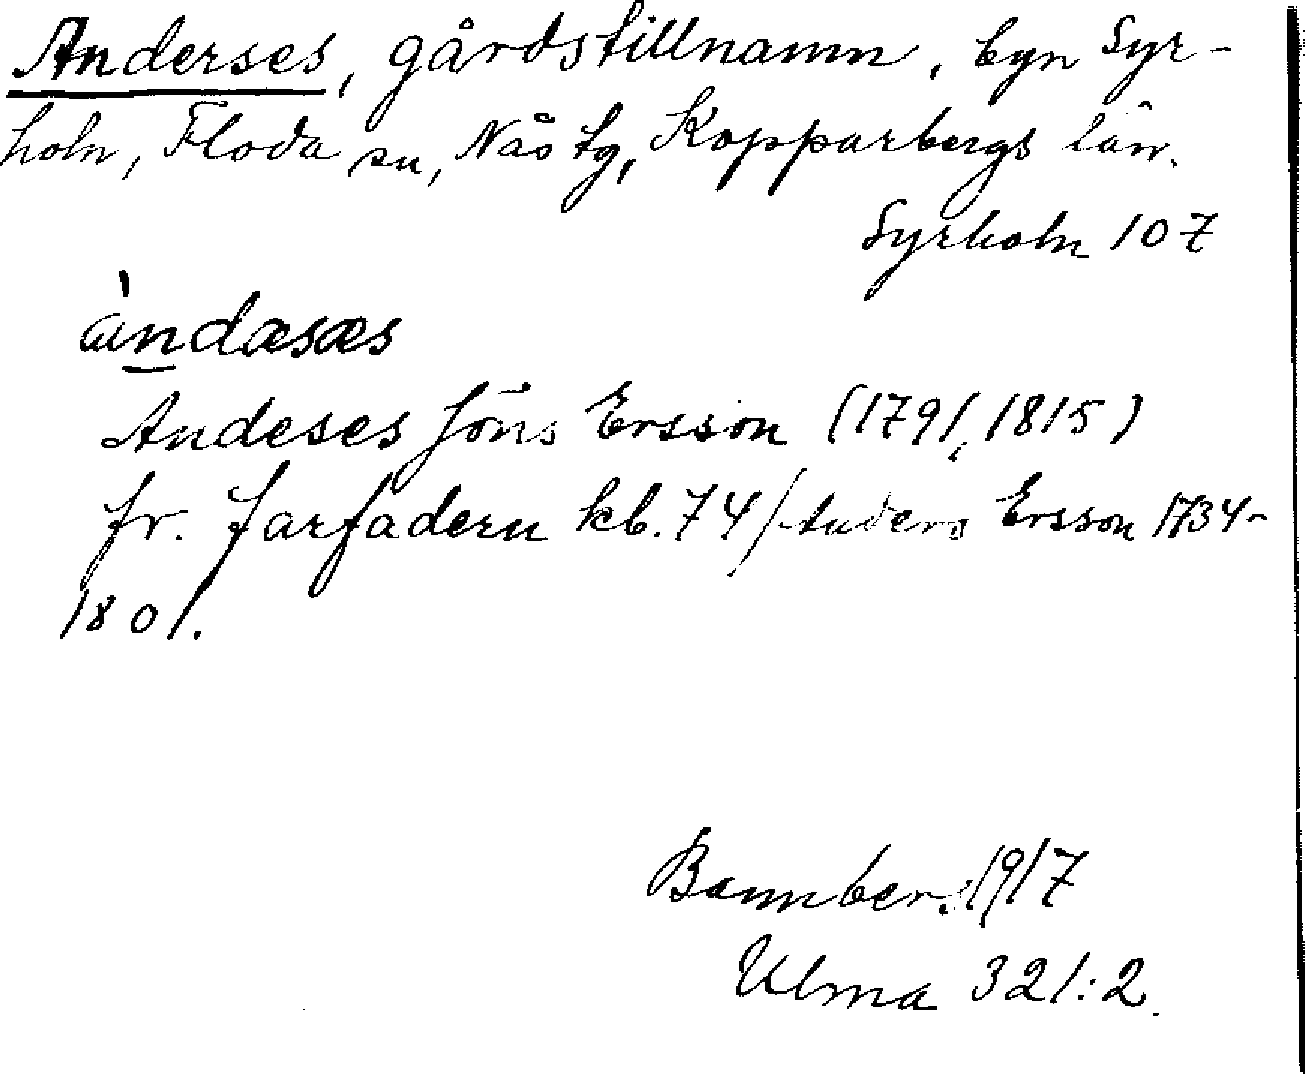 Anderses, gårdstillnamn, byn Syr-
holn, Floda sn, Nås tg, Kopparbergs län.
Syrholn 107
àndæsæs
Andeses Jöns Ersson (1791, 1815)
fr. farfadern kb. 74/Anders Ersson 1734-
1801.
Bannbers 1917
Ulma 321:2.